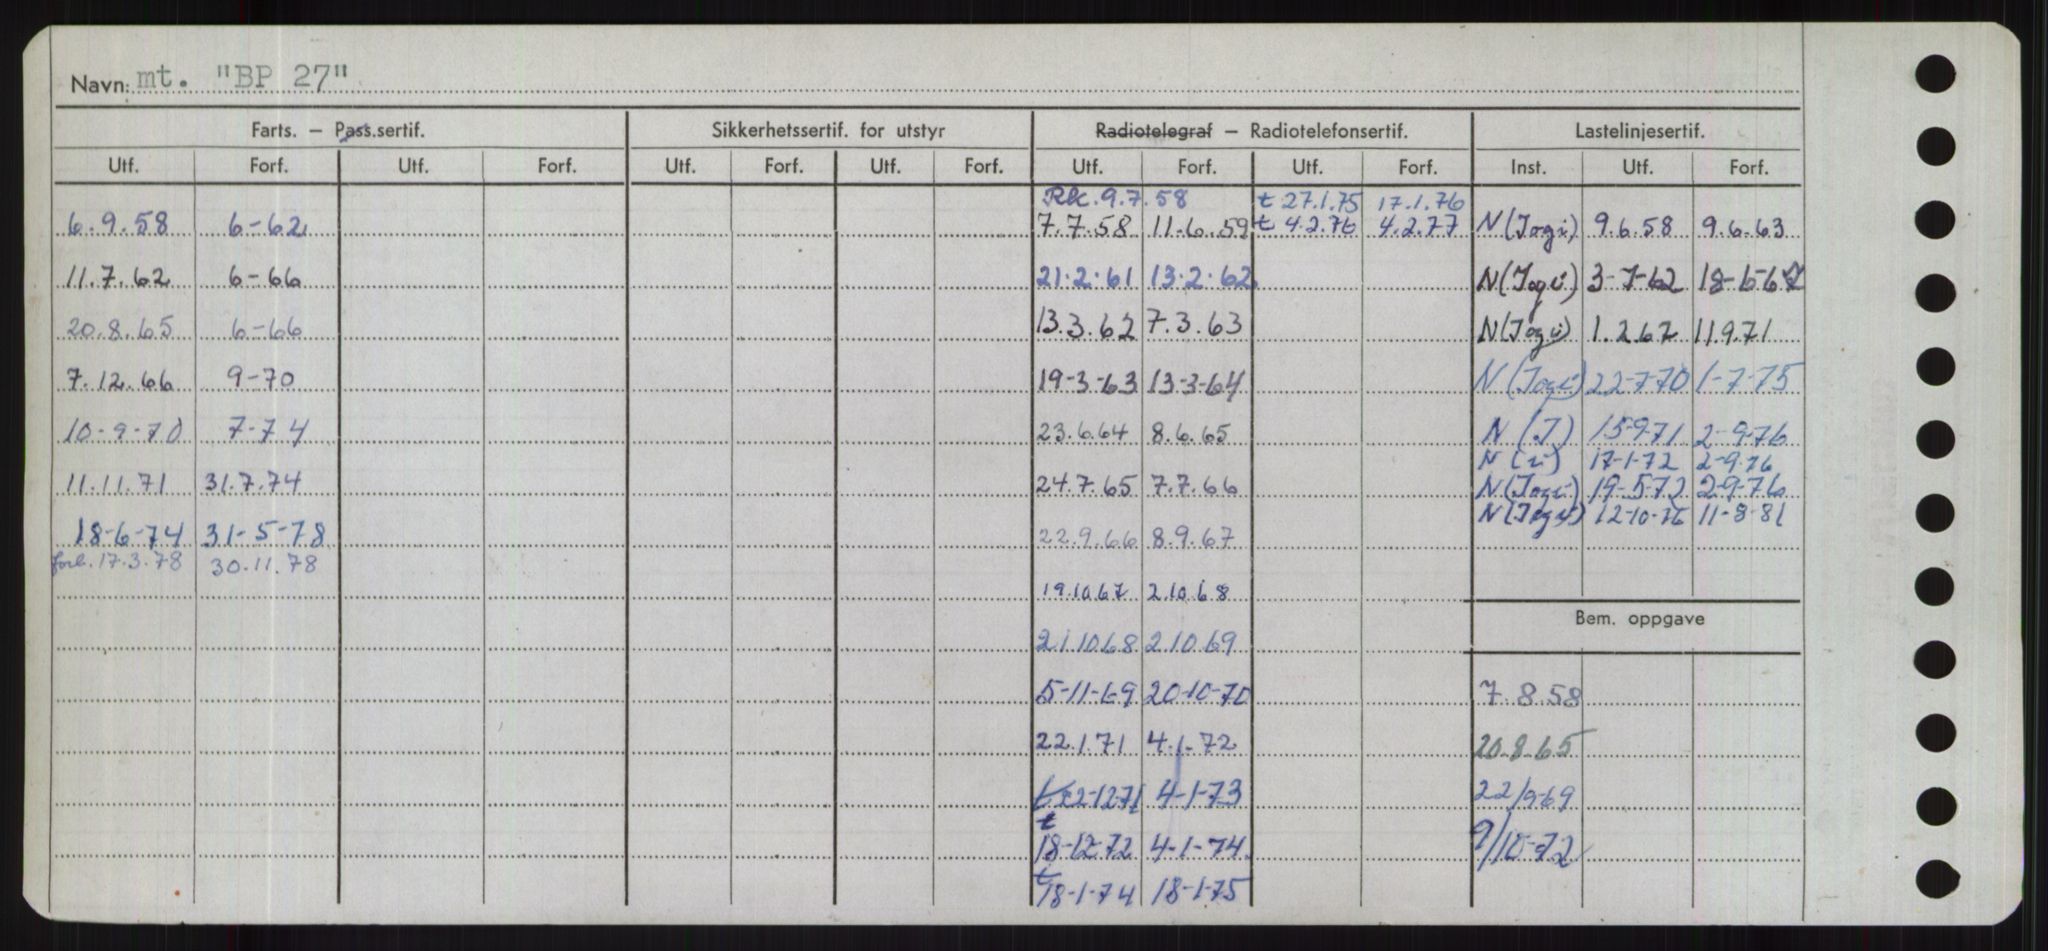 Navn: mt. "BP 27"
Farts. — Pass.sertif. Sikkerhetssertif. for utstyr Radiotelegraf — Radiotelefonsertif. Lastelinjesertif.
Utf. Forf. Utf. Forf. Utf. Forf. Utf. Forf. Utf. Forf. Utf. Forf. Inst. Utf. Forf.
Rk. 9.7.58 t 27.1.75 17.1.76
6.9.58 6-62 7.7.58 11.6.59 t 4.2.76 4.2.77 N(Jogi) 9.6.58 9.6.63
11.7.62 6-66 21.2.61 13.2.62 N(Jogi) 3-7-62 18-6-67
20.8.65 6-66 13.3.62 7.3.63 N(Jogi) 1.2.67 11.9.71
7.12.66 9-70 19-3-63 13-3-64 N(Jogi) 22-7-70 1-7-75
10-9-70 7-74 23.6.64 8.6.65 N(J) 15-9-71 2-9-76
N(i) 17-1-72 2-9-76
11.11.71 31.7.74 24.7.65 7.7.66 N(Jogi) 19-5-72 2-9-76
N(Jogi) 12-10-76 11-8-81
18-6-74 31-5-78 22.9.66 8.9.67
forl. 17.3.78 30.11.78
19.10.67 2.10.68
Bem. oppgave
21.10.68 2.10.69
5-11-69 20-10-70 7.8.58
22.1.71 4.1.72 20.8.65
t 22-12-71 4-1-73 22/9-69
t 18-12-72 4-1-74 9/10-72
t 18-1-74 18-1-75